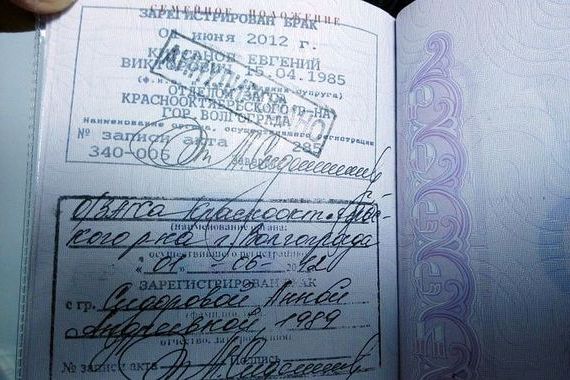 СЕМЕЙНОЕ ПОЛОЖЕНИЕ
ЗАРЕГИСТРИРОВАН БРАК
01 июня 2012 г.
ЕВГЕНИЙ
15.04.1985
(ф.и.о. супруга)
ОТДЕЛОМ ЗАГСА
КРАСНООКТЯБРЬСКОГО Р-НА
ГОР. ВОЛГОГРАДА
Наименование органа, осуществившего регистрацию
№ записи акта 285
340-006 Заверено
О/ЗАГСА Краснооктябрьс-
кого р-на г. Волгограда
(наименование органа,
осуществившего регистрацию)
"01" - 06 - 2012
ЗАРЕГИСТРИРОВАН БРАК
с гр. Сидоровой Анной
Андреевной, 1989
отчество, дата рождения
№ записи акта Подпись